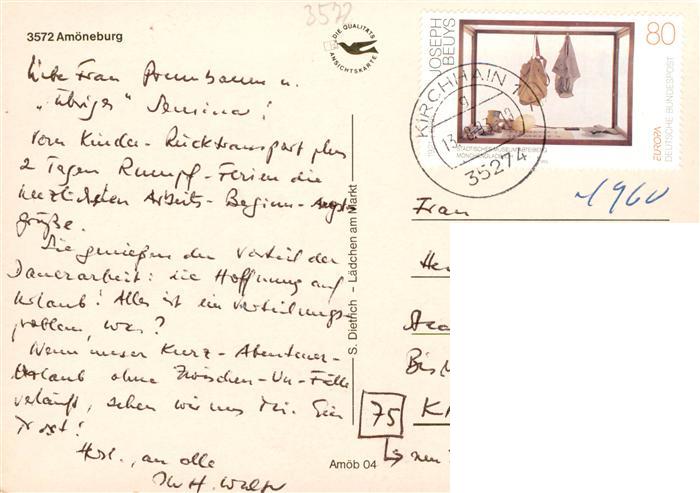 3572
3572 Amöneburg
DIE QUALITÄTS
ANSICHTSKARTE
Liebe Frau u.
"übriges" Seminar!
Vom Kinder-Rücktransport plus
2 Tagen Rumpf-Ferien die
herzlichsten Arbeits-Beginn-Angst-
grüße.
Sie genießen den Vorteil der
Dauerarbeit: die Hoffnung auf
Urlaub! Alles ist ein Verteilungs-
problem, was?
Wenn unser Kurz-Abenteuer-
Urlaub ohne Zwischen-Un-Fälle
verläuft, sehen wir uns Mi. Ein
Trost!
Herzl., an alle
Ihr H.
S. Dietrich – Lädchen am Markt
Amöb 04
JOSEPH
BEUYS
80
STÄDTISCHES MUSEUM
EUROPA
DEUTSCHE BUNDESPOST
KIRCHHAIN 1
35274
~1960
Frau
75